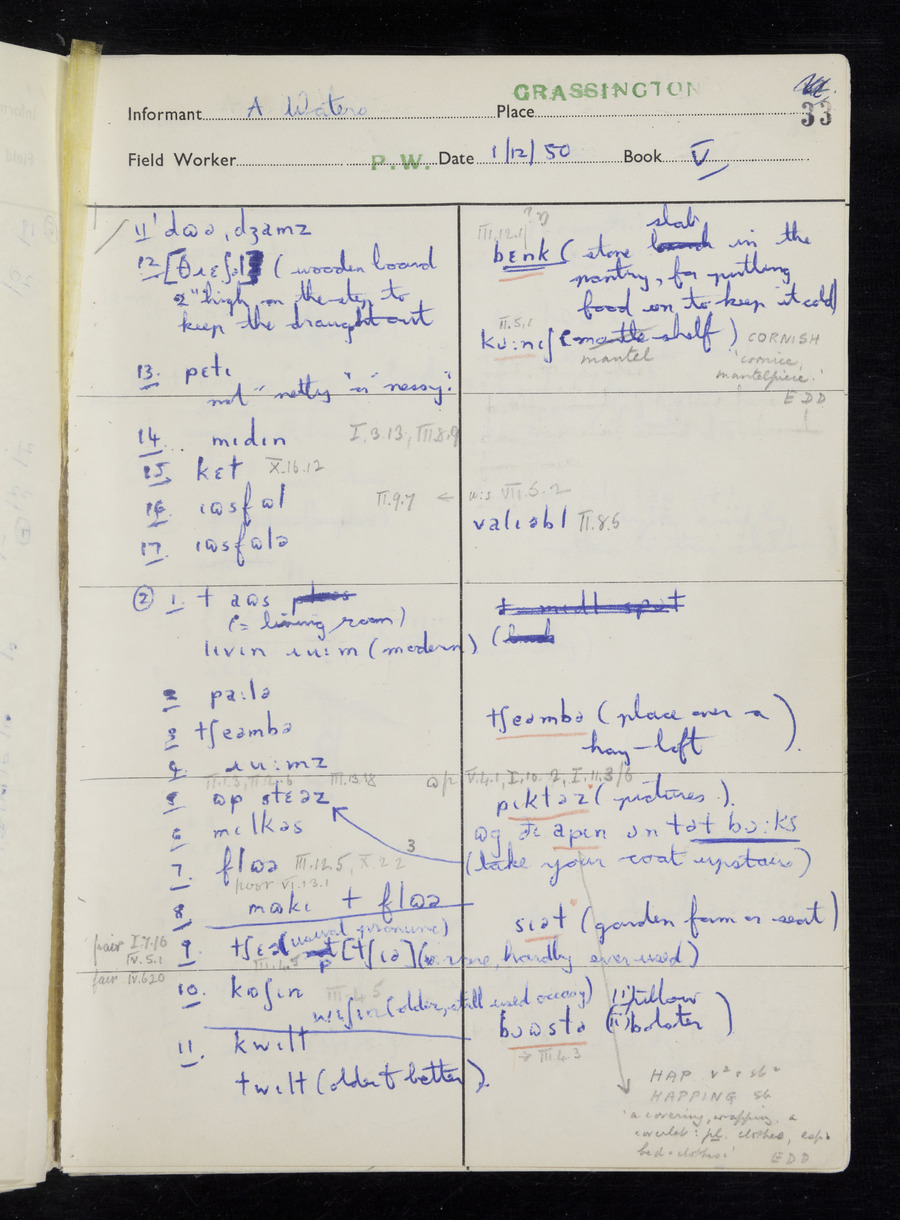 GRASSINGTON
33
Informant A Waters Place
Field Worker P.W. Date 1/12/50 Book V
11 dɷə, dʒamz
12 [θɹɛʃəl] (wooden board
2" high, on the step to
keep the draught out
13. pɛtɪ
not "netty" or "nessy".
14. mɪdɪn I.3.13, III.8.9
15. kɛt X.16.12
16. ɹɷsfɷl
17. ɹɷsfɷlə
② 1. t aɷs
(= living room)
livin ɹu:m (modern)
2 pa:lə
3 tʃeəmbə
4. ɹu:mz
III.13.18
5 ɷp stɛəz
6 mɪlkəs
7. flɷə III.12.5, X.2.2
poor VI.13.1
8 mɷkɪ t flɷə
9. tʃɛə (usual pronunc)
[tʃɪə] (hardly ever used)
III.4.5
pair I.7.16
IV.5.1
fair IV.6.20
10. kɷʃɪn III.4.5
(older, still used occasy)
11. kwɪlt
twɪlt (older & better).
III.12.1
bɛnk (stone slab in the
pantry, for putting
food on to keep it cold
II.5.1
kɔ:nɪʃ (mantle shelf) CORNISH
mantel 'cornice,
mantelpiece.'
EDD
II.9.7 ← VII.5.2
valɪəbl II.8.5
t mɪdl spɔt
tʃeəmbə (place over a
hay-loft).
ɷp V.4.1, I.10.2, I.11.3/6
pɪktəz (pictures).
apɪn ɔn tət bɔ:ks
3
(take your coat upstairs)
sɪət (garden form or seat)
bɔɷstə (i) pillow
(ii) bolster)
→ III.4.3
HAP v² & sb²
HAPPING sb
'a covering, wrapping, a
coverlet: pl. clothes, esp.
bed-clothes.'
EDD